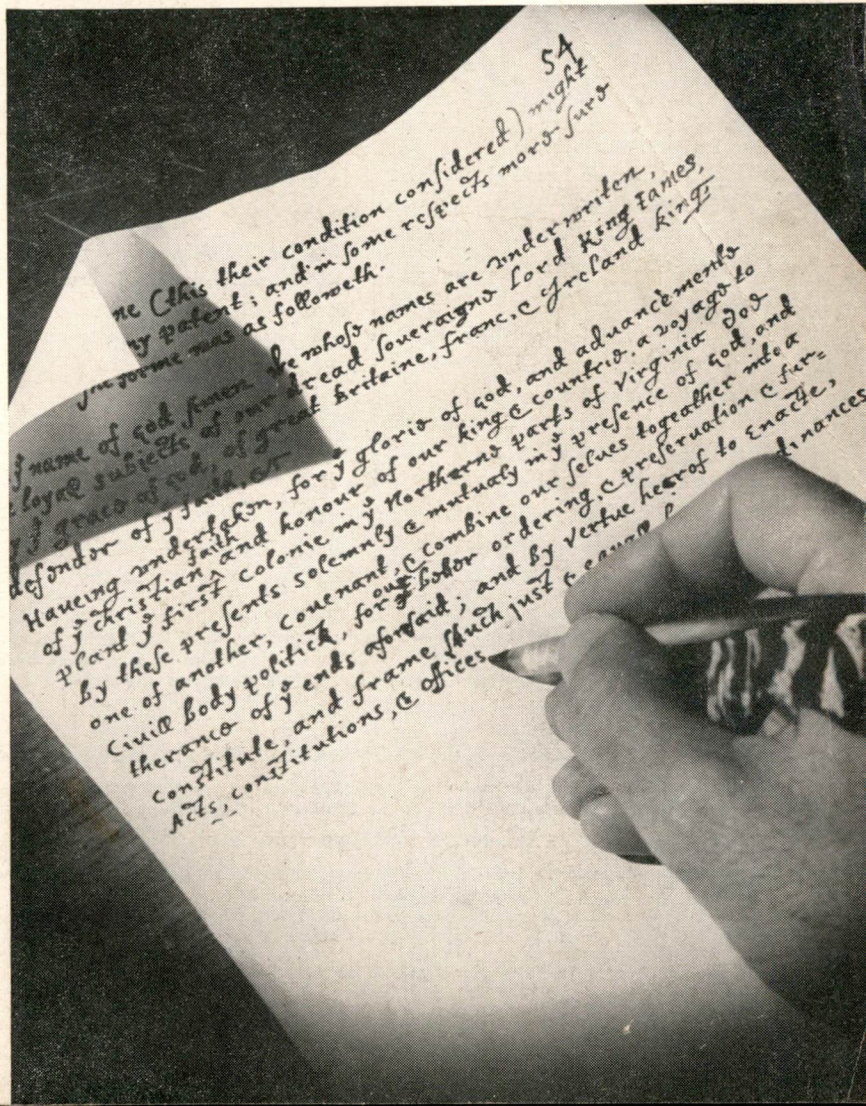 54
ne (this their condition considered) might
ny patent; and in some respects more sure
The forme was as followeth.
yͤ name of God Amen We whose names are underwriten,
loyal subiects of our dread soueraigne Lord King James,
yͤ grace of God, of great Britaine, franc, & Ireland king,
defender of yͤ faith, &c
Haueing undertaken, for yͤ glorie of God, and advancemente
of yͤ christian faith and honour of our king & countrie, a voyage to
plant yͤ first colonie in yͤ Northerne parts of Virginia doe
by these presents solemnly & mutualy in yͤ presence of God, and
one of another, couenant, & combine our selues togeather into a
Ciuill body politick, for our better ordering, & preseruation & fur=
therance of yͤ ends aforesaid; and by vertue hearof to Enacte,
constitute, and frame shuch just & equall dinances
Acts, constitutions, & offices